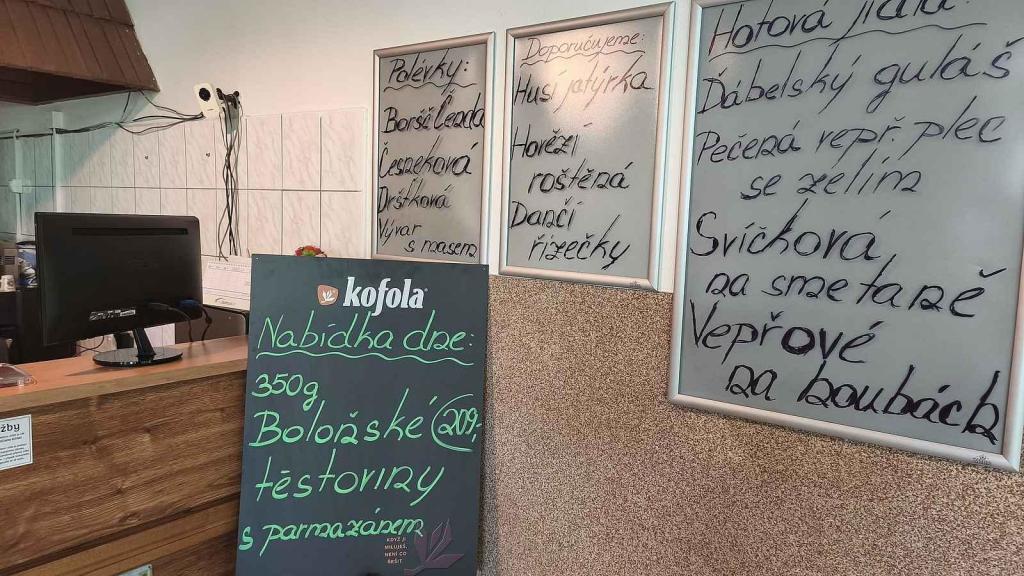 Polévky:
Boršč Leada
Česneková
Dršťková
Vývar
s masem
Doporučujeme:
Husí játýrka
Hovězí
roštěná
Dančí
řízečky
Hotová jídla:
Ďábelský guláš
Pečená vepř. plec
se zelím
Svíčková
na smetaně
Vepřové
na houbách
kofola
Nabídka dne:
350g
Boloňské 209,-
těstoviny
s parmazánem
KDYŽ JI
MILUJEŠ,
NENÍ CO
ŘEŠIT
žby